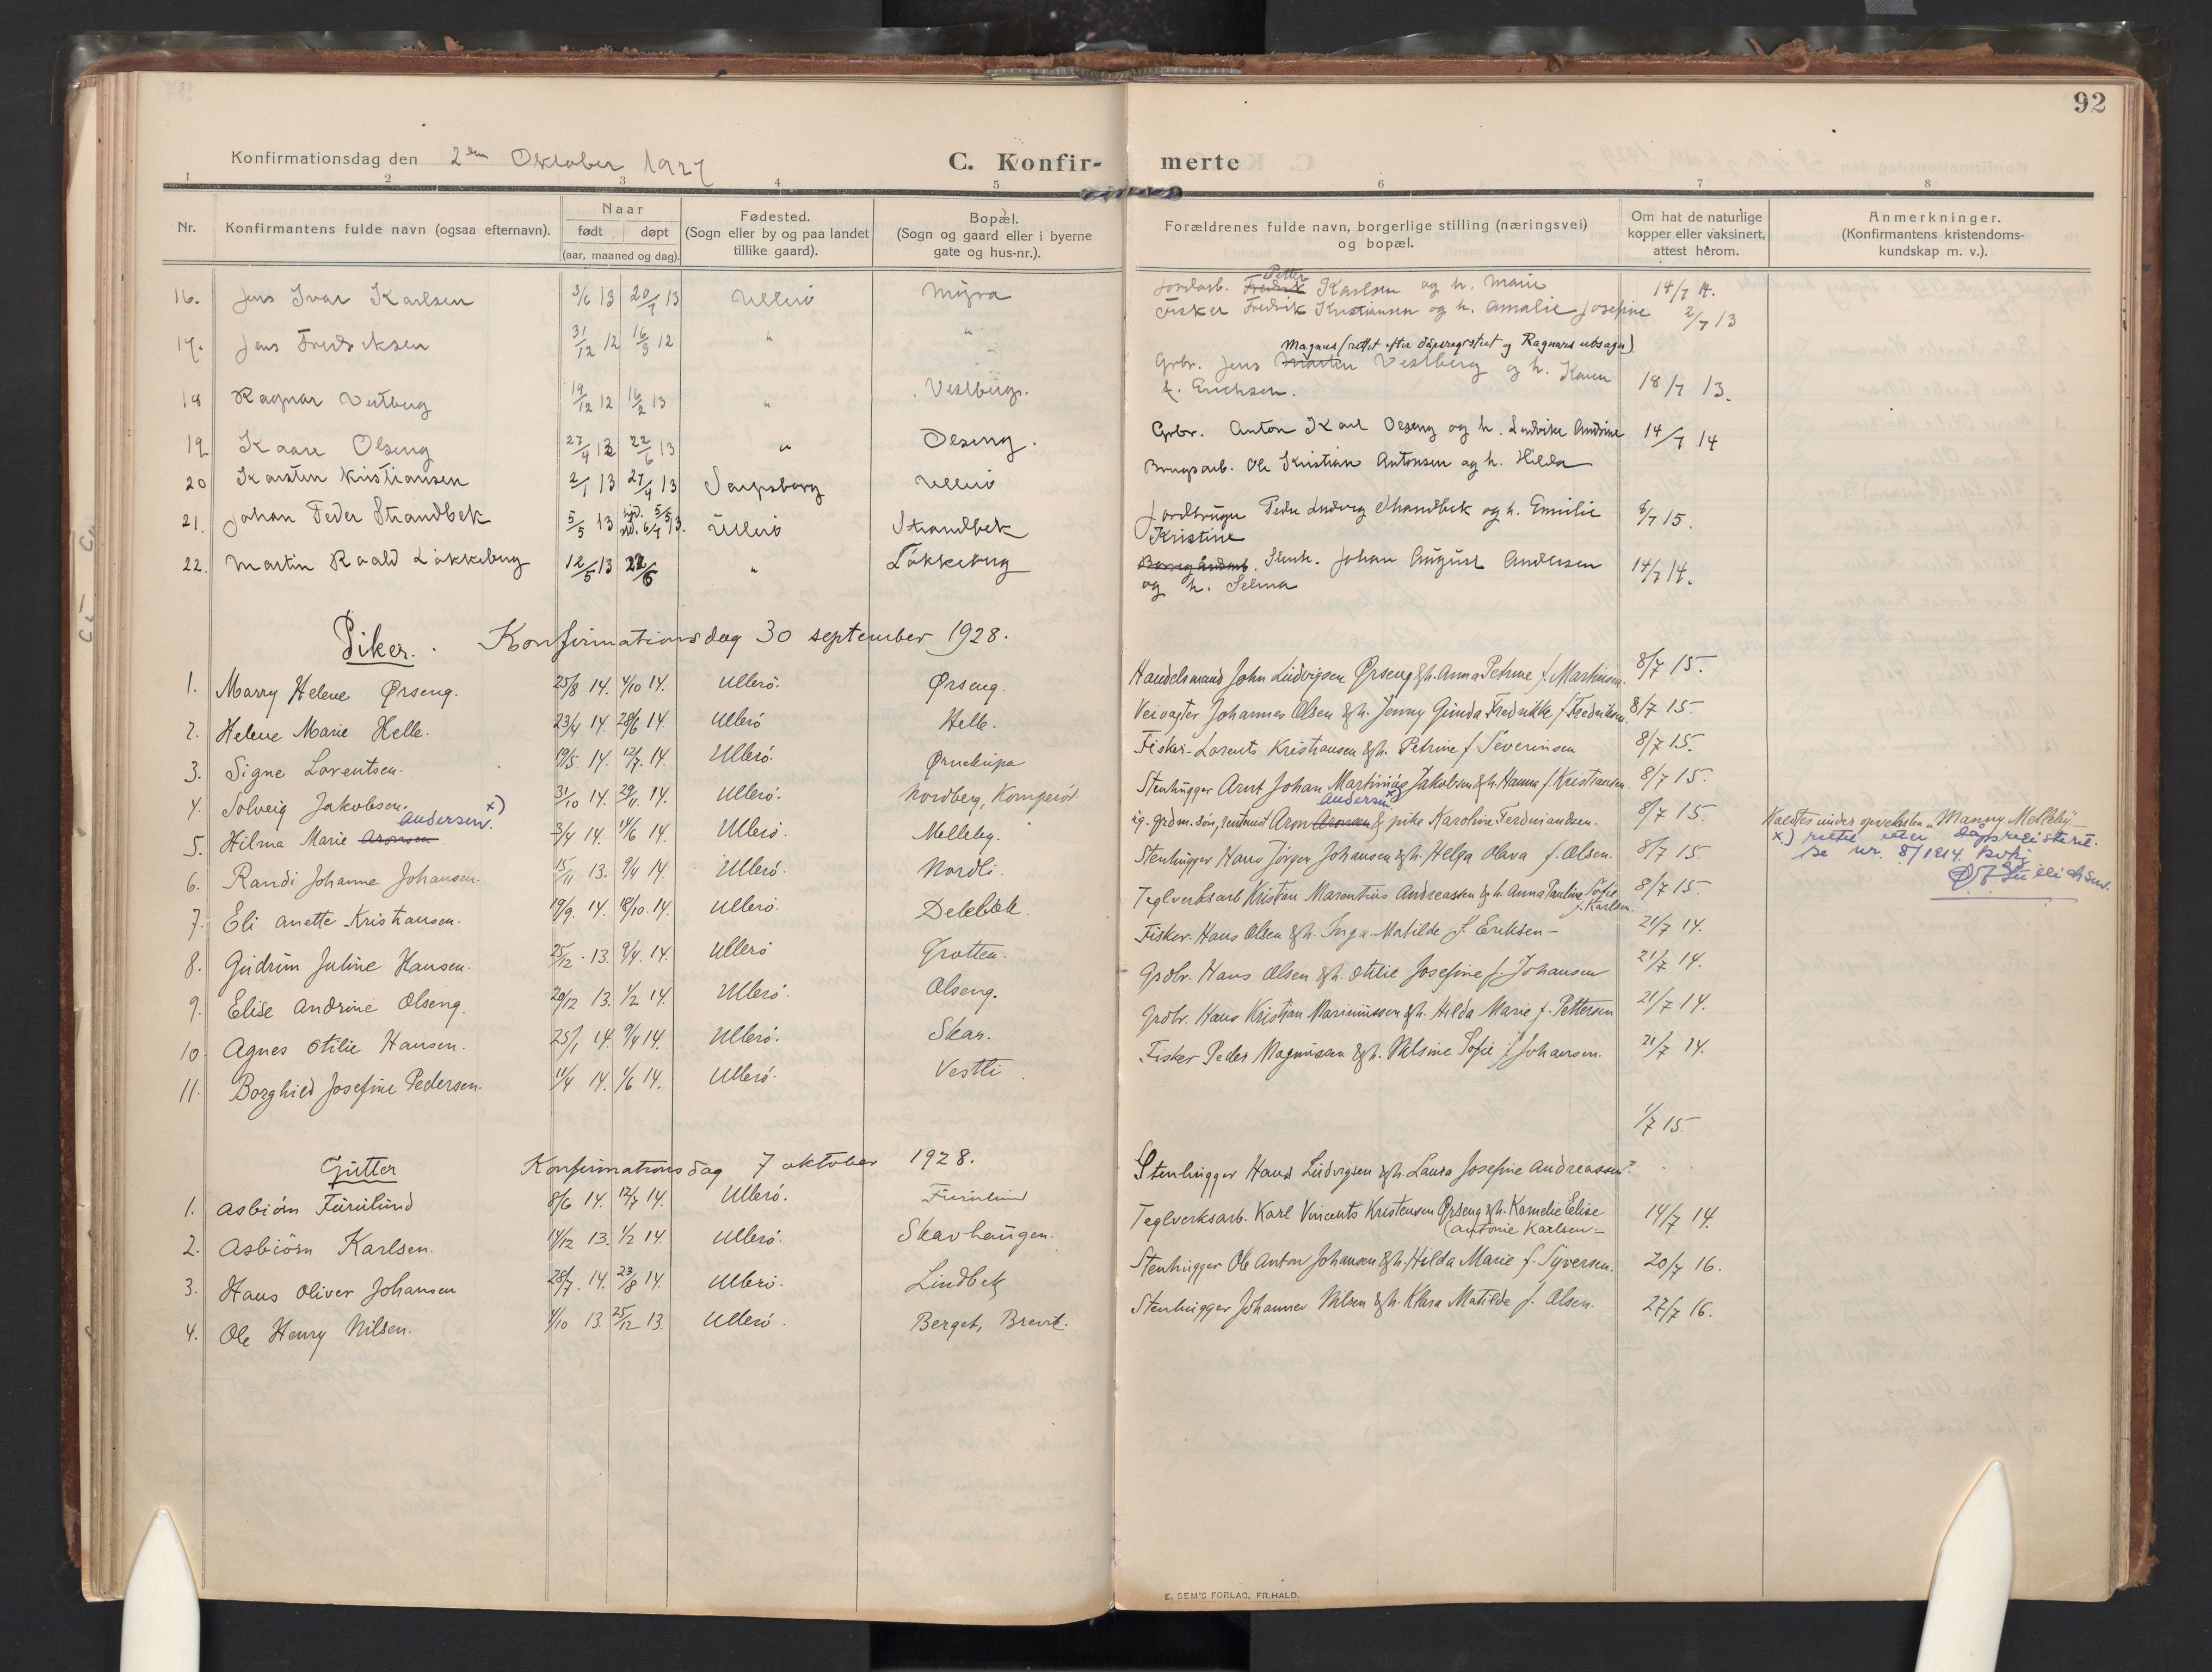 92
Konfirmationsdag den 2den Oktober 1927 C. Konfir- merte
1 2 3 4 5 6 7 8
Nr. Konfirmantens fulde navn (ogsaa efternavn). Naar født døpt (aar, maaned og dag). Fødested. (Sogn eller by og paa landet tillike gaard). Bopæl. (Sogn og gaard eller i byerne gate og hus-nr.). Forældrenes fulde navn, borgerlige stilling (næringsvei) og bopæl. Om hat de naturlige kopper eller vaksinert, attest herom. Anmerkninger. (Konfirmantens kristendoms- kundskap m. v.).
16. Jens Ivar Karlsen 3/6 13 20/7 13 Ullerö Myra Jordarb. Fredrik Petter Karlsen og h. Marie 14/7 14.
17. Jens Fredriksen 31/12 12 16/3 12 " " Fisker Fredrik Kristiansen og h. Amalie Josefine 2/7 13
Magnus (rettet efter dåpsregisteret og Ragnars utsagn)
18 Ragnar Vestberg 19/12 12 16/2 13 " Vestberg. Grbr. Jens Martin Vestberg og h. Karen f. Erichsen. 18/7 13.
19 Kaare Olseng 27/4 13 22/6 13 " Olseng. Grbr. Anton Karl Olseng og h. Ludvike Andrine 14/7 14
20 Karsten Kristiansen 2/1 13 27/4 13 Sarpsborg Ullerö Brugsarb. Ole Kristian Antonsen og h. Hilda
21. Johan Peder Strandbek 5/5 13 Ullerö Strandbek Jordbruger Peder Ludvig Strandbek og h. Emilie Kristine 8/7 15.
22. Martin Roald Løkkeberg 12/5 13 22/6 " Løkkeberg Stenh. Johan August Andersen og h. Selma 14/7 14.
Piker. Konfirmationsdag 30 september 1928.
1. Marry Helene Ørseng. 25/8 14. 4/10 14. Ullerö. Ørseng. Handelsmand John Ludvigsen Ørseng & h. Anna Petrine f. Martinsen. 8/7 15.
2. Helene Marie Helle. 23/4 14. 28/6 14. Ullerö Helle. Veivogter Johannes Olsen & h. Jenny Gunda Fredrikke f. Fredriksen. 8/7 15.
3. Signe Lorentsen. 19/5 14. 12/7 14. Ullerö. Ørnekupa Fisker Lorents Kristiansen & h. Petrine f. Severinsen 8/7 15.
4. Solveig Jakobsen. 31/10 14. 29/11 14. Ullerö. Nordberg, Komperöd Stenhugger Arnt Johan Martinius Jakobsen & h. Hanna f. Kristiansen 8/7 15.
5. Hilma Marie Aronsen Andersen. x) 3/4 14. 14/6 14. Ullerö. Melleby. ug. grdm. søn, rentenist Aron Aronsen Andersen x) & pike Karoline Ferdinandsen. 8/7 15. Kaldtes under opveksten „Manny Melleby"
x) rettet etter dåpsregisteret.
se nr. 8/1914.
6. Randi Johanne Johansen. 15/11 13. 9/4 14. Ullerö. Nordli. Stenhugger Hans Jörgen Johansen & h. Helga Olava f. Olsen. 8/7 15.
7. Eli Anette Kristiansen. 19/9. 14. 18/10. 14. Ullerö. Delebäk. Teglverksarb Kristian Marentius Andreassen & h. Anna Pauline Sofie f. Karlsen. 8/7 15.
8. Gudrun Juline Hansen. 25/12 13. 9/4. 14. Ullerö Grotten. Fisker Hans Olsen & h. Inga Matilde f. Eriksen 21/7 14.
9. Elise Andrine Olseng. 20/12 13. 1/2 14. Ullerö. Olseng. Grdbr. Hans Olsen & h. Otilie Josefine f. Johansen 21/7 14.
10. Agnes Otilie Hansen. 25/1 14. 9/4 14. Ullerö. Skar. Grdbr. Hans Kristian Mariniussen & h. Hilda Marie f. Pettersen 21/7 14.
11. Borghild Josefine Pedersen. 11/4 14. 1/6 14. Ullerö. Vestli Fisker Peder Magnussen & h. Nilsine Sofie f. Johansen. 21/7 14.
Gutter Konfirmationsdag 7 oktober 1928.
1. Asbiörn Furulund 8/6 14. 12/7 14. Ullerö. Furulund Stenhugger Hans Ludvigsen & h. Laura Josefine Andreassen. 1/7 15.
2. Asbiörn Karlsen. 14/12 13. 1/2 14. Ullerö. Skavhaugen. Teglverksarb. Karl Vincents Kristensen Ørseng & h. Kornelie Elise Antonie Karlsen 14/7 14.
3. Hans Oliver Johansen 28/7. 14. 23/8 14. Ullerö. Lindbek Stenhugger Ole Anton Johansen & h. Hilda Marie f. Syversen. 20/7 16.
4. Ole Henry Nilsen. 4/10 13. 25/12 13. Ullerö. Berget, Brevik. Stenhugger Johannes Nilsen & h. Klara Matilde f. Olsen. 27/7 16.
E. SEM'S FORLAG, FR.HALD.